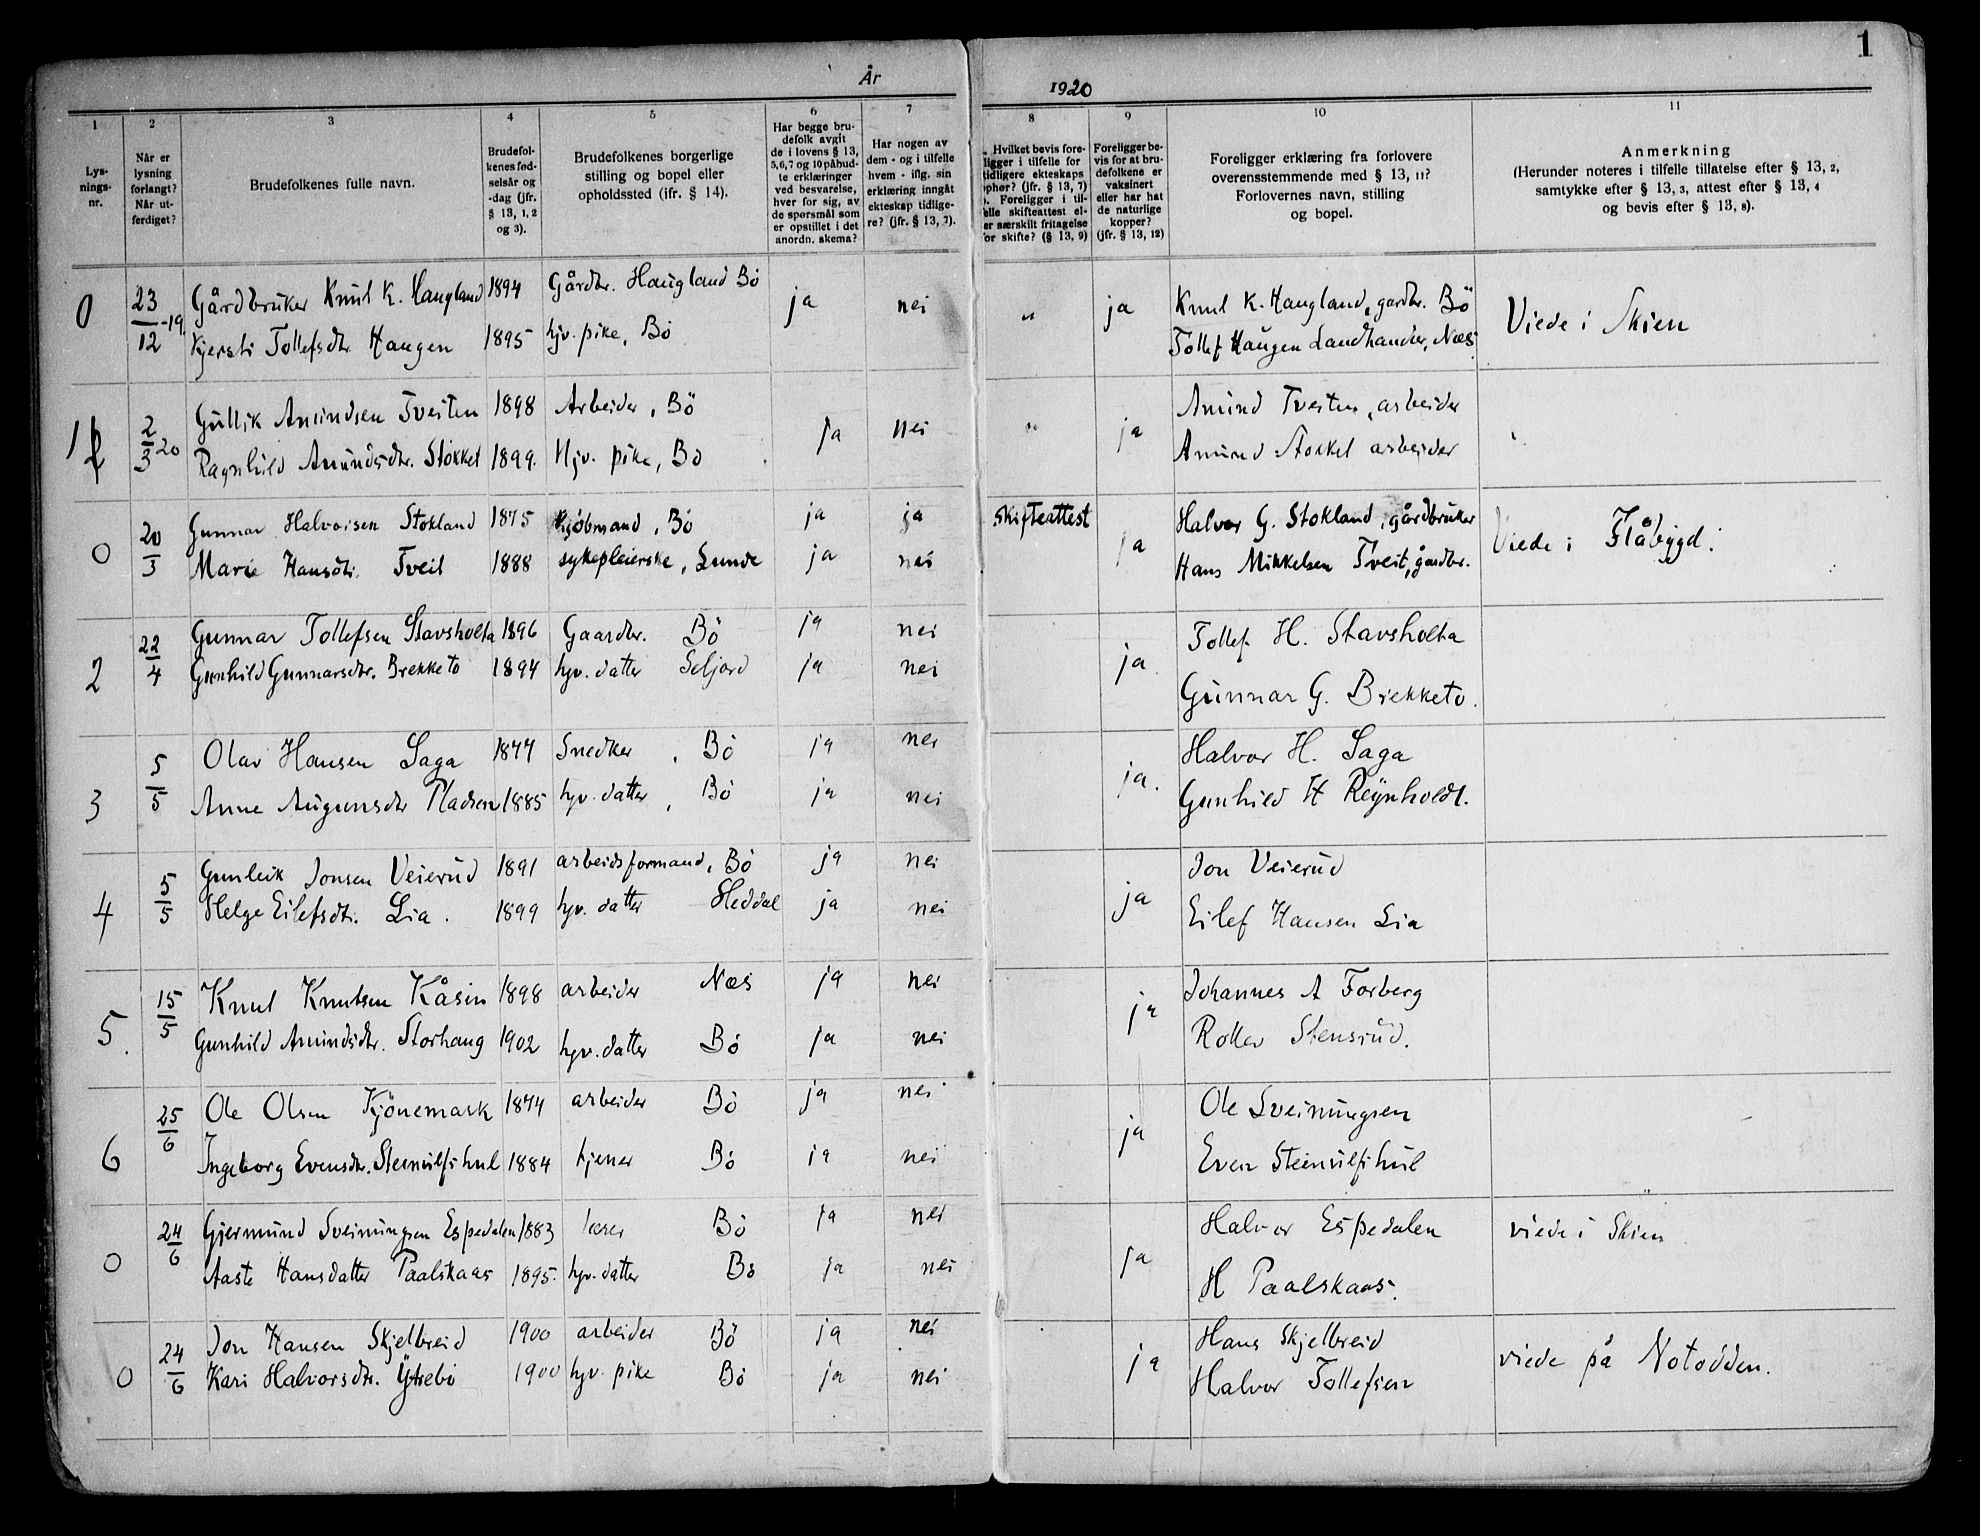 1
År 1920
1 2 3 4 5 6 7 8 9 10 11
Lys-
nings-
nr.
Når er
lysning
forlangt?
Når ut-
ferdiget?
Brudefolkenes fulle navn.
Brudefol-
kenes fød-
selsår og
-dag (jfr.
§ 13, 1, 2
og 3).
Brudefolkenes borgerlige
stilling og bopel eller
opholdssted (ifr. § 14).
Har begge bru-
defolk avgit
de i lovens § 13,
5, 6, 7 og 10 påbud-
te erklæringer
ved besvarelse,
hver for sig, av
de spørsmål som
er opstillet i det
anordn. skema?
Har nogen av
dem - og i tilfelle
hvem - iflg. sin
erklæring inngåt
ekteskap tidlige-
re? (jfr. § 13, 7).
Hvilket bevis fore-
ligger i tilfelle for
tidligere ekteskaps
ophør? (jfr. § 13, 7)
Foreligger i til-
felle skifteattest el-
er særskilt fritagelse
for skifte? (§ 13, 9)
Foreligger be-
vis for at bru-
defolkene er
vaksinert
eller har hat
de naturlige
kopper?
(jfr. § 13, 12)
Foreligger erklæring fra forlovere
overensstemmende med § 13, 11?
Forlovernes navn, stilling
og bopel.
Anmerkning
(Herunder noteres i tilfelle tillatelse efter § 13, 2,
samtykke efter § 13, 3, attest efter § 13, 4
og bevis efter § 13, 8).
0 23/12-19. Gårdbruker Knut K. Haugland 1894 Gårdbr. Haugland Bö ja nei " ja Knut K. Haugland, gardbr. Bö
Kjersti Tollefsdtr. Haugen 1895 hjv. pike, Bö Tollef Haugen Landhandler, Næs Viede i Skien
1 2/3 20 Gullik Amundsen Tveiten 1898 Arbeider, Bö ja nei " ja Amund Tveiten, arbeider
Ragnhild Amundsdtr. Stokket 1899. Hjv. pike, Bö Amund Stokket arbeider
0 20/3 Gunnar Halvorsen Stokland 1875 Kjøbmand, Bö ja ja skifteattest ja Halvor G. Stokland, gårdbruker Viede i Flåbygd.
Marie Hansdtr. Tveit 1888 sykepleierske, Lunde ja nei Hans Mikkelsen Tveit, gårdbr.
2 22/4 Gunnar Tollefsen Stavsholta 1896 Gaardbr. Bö ja nei ja Tollef H. Stavsholta
Gunhild Gunnarsdtr. Brekketo 1894 hjv. datter Seljord ja nei Gunnar G. Brekketo.
3 5/5 Olav Hansen Saga 1877 Snedker, Bö ja nei ja. Halvor H. Saga
Anne Augunsdtr Pladsen 1885 hjv. datter, Bö ja nei Gunhild H Reynholdt.
4 5/5 Gunleik Jonsen Veierud 1891 arbeidsformand, Bö ja nei ja Jon Veierud
Helge Eilefsdtr. Lia. 1899 hjv. datter Heddal ja nei Eilef Hansen Lia
5. 15/5 Knut Knutsen Kåsin 1898 arbeider Næs ja nei ja Johannes A Forberg
Gunhild Amundsdtr. Storhaug 1902 hjv. datter Bö ja nei Rollev Stensrud.
6 25/6 Ole Olsen Kjönemark 1874 arbeider Bö ja nei ja Ole Sveinungsen
Ingeborg Evensdtr. Steinulfshul 1884 tjener Bö ja nei Even Steinulfshul
0 24/6 Gjermund Sveinungsen Espedalen 1883 lærer Bö ja nei ja Halvor Espedalen viede i Skien
Aaste Hansdatter Paalskaas 1895. hjv. datter Bö ja nei H Paalskaas.
0 24/6 Jon Hansen Skjelbreid 1900 arbeider Bö ja nei ja Hans Skjelbreid viede på Notodden.
Kari Halvorsdtr. Ytrebö 1900 hjv. pike Bö ja nei Halvor Tollefsen